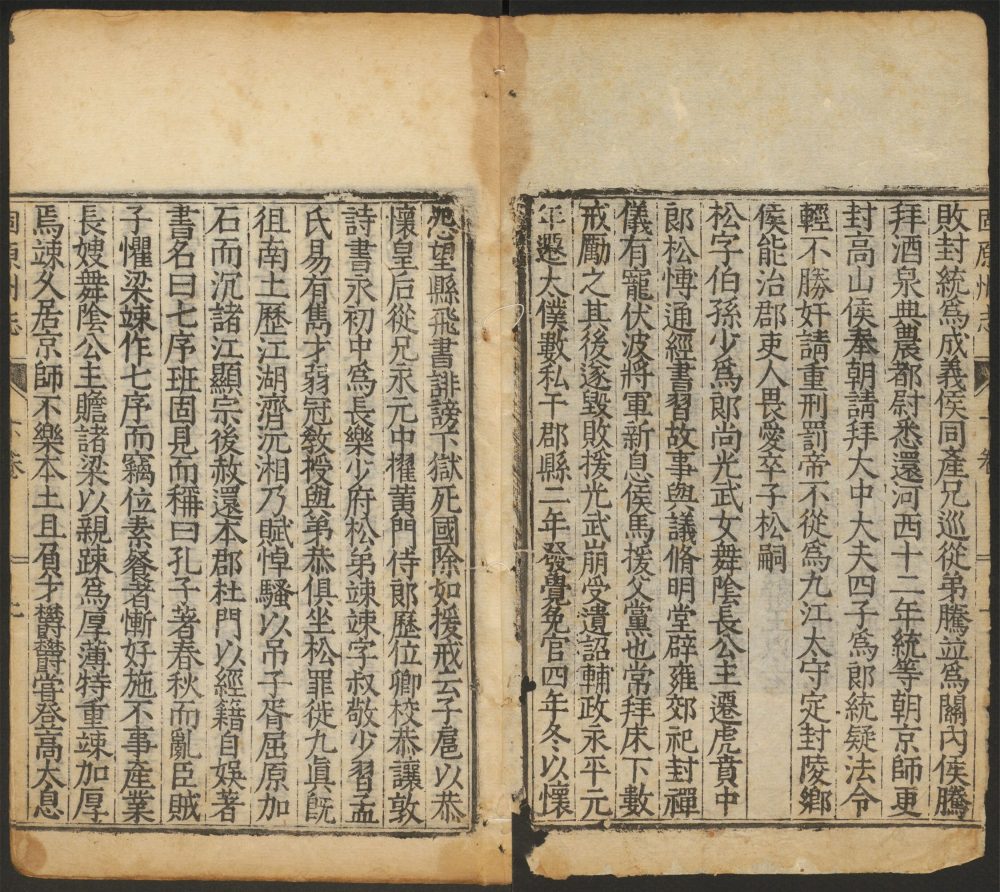 固原州志 卷 十
敗封統爲成義侯同產兄巡從弟騰並爲關內侯騰
拜酒泉典農都尉悉還河西十二年統等朝京師更
封高山侯奉朝請拜大中大夫四子爲郎統疑法令
輕不勝奸請重刑罰帝不從爲九江太守定封陵鄉
侯能治郡吏人畏愛卒子松嗣
松字伯孫少爲郎尚光武女舞陰長公主遷虎賁中
郎松愽通經書習故事與議脩明堂辟雍郊祀封禪
儀有寵伏波將軍新息侯馬援父黨也常拜床下數
戒勵之其後遂毀敗援光武崩受遺詔輔政永平元
年遷太僕數私干郡縣二年發覺免官四年冬以懷
怨望縣飛書誹謗下獄死國除如援戒云子扈以恭
懷皇后從兄永元中擢黄門侍郎歷位卿校恭讓敦
詩書永初中爲長樂少府松弟竦竦字叔敬少習孟
氏易有雋才弱冠敎授與弟恭俱坐松罪徙九眞旣
徂南土歷江湖濟沅湘乃賦悼騷以吊子胥屈原加
石而沉諸江顯宗後赦還本郡杜門以經籍自娛著
書名曰七序班固見而稱曰孔子著春秋而亂臣賊
子懼梁竦作七序而竊位素餐者慚好施不事產業
長嫂舞陰公主贍諸梁以親踈爲厚薄特重竦加厚
焉竦久居京師不樂本土且負才欝欝嘗登高太息
固原州志 卷